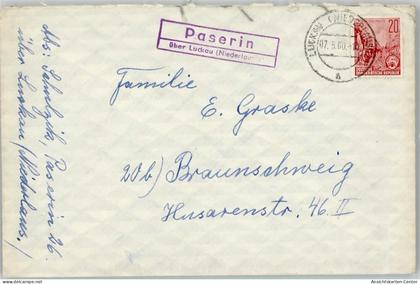 Abs: Schulzik, Paserin 26.
über Luckau/Niederlaus./
Paserin
über Luckau (Niederlausitz)
LUCKAU (NIEDERLAUSITZ)
a
20
DEUTSCHE DEMOKRATISCHE REPUBLIK
Familie
E. Graske
20b) Braunschweig
Husarenstr. 46 II
www.delcampe.net
Ansichtskarten-Center